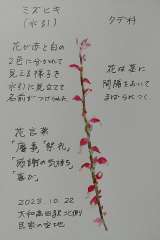 ミズヒキ
(水引)
タデ科
花が赤と白の
2色に分かれて
見える様子を
水引に見立てて
名前がつけられた
花は茎に
間隔をおいて
まばらにつく
花言葉
「慶事、祭礼」
「感謝の気持ち」
「喜び」
2023.10.22
大和高田駅北側
民家の空地